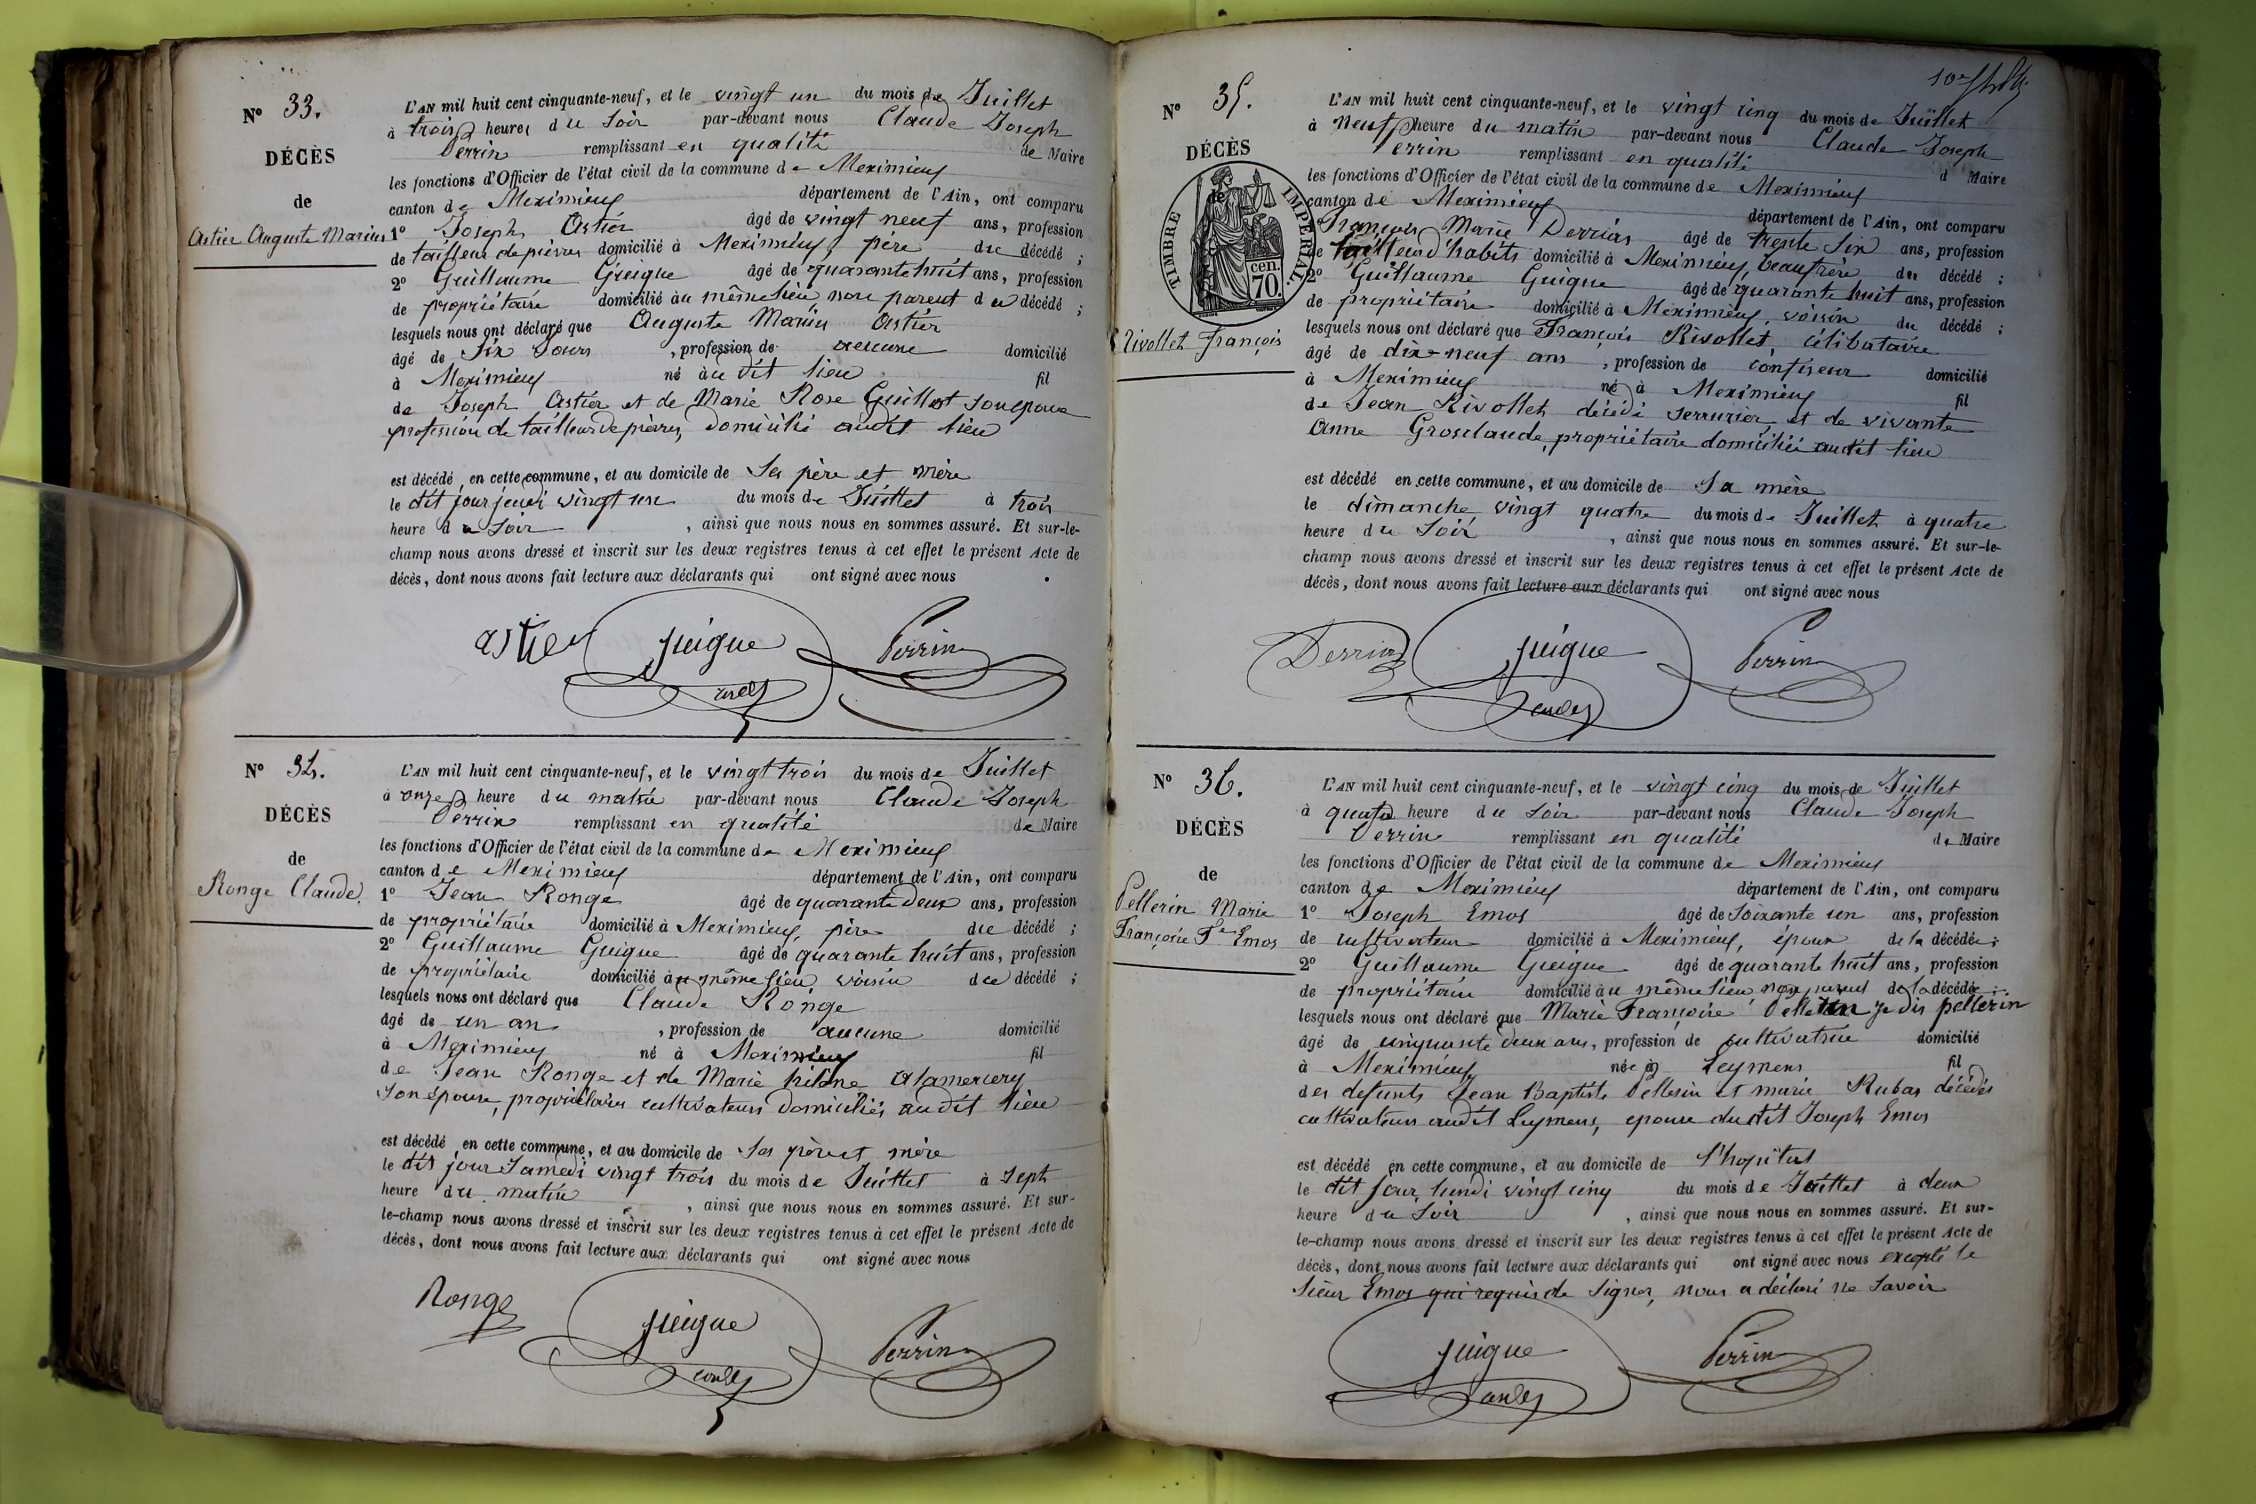 N° 33.
DÉCÈS
de
Astier Auguste Marius
L'AN mil huit cent cinquante-neuf, et le vingt un du mois de Juillet
à trois heures du soir par-devant nous Claude Joseph
Perrin remplissant en qualité de Maire
les fonctions d'Officier de l'état civil de la commune de Meximieux
canton de Meximieux département de l'Ain, ont comparu
1° Joseph Astier âgé de vingt neuf ans, profession
de tailleur de pierres domicilié à Meximieux, père du décédé ;
2° Guillaume Guigue âgé de quarante huit ans, profession
de propriétaire domicilié au même lieu, non parent du décédé ;
lesquels nous ont déclaré que Auguste Marius Astier
âgé de six jours , profession de aucune domicilié
à Meximieux né au dit lieu fil
de Joseph Astier et de Marie Rose Guillot son épouse
profession de tailleur de pierres, domicilié audit lieu
est décédé en cette commune, et au domicile de ses père et mère
le dit jour jeudi vingt un du mois de Juillet à trois
heure du soir , ainsi que nous nous en sommes assuré. Et sur-le-
champ nous avons dressé et inscrit sur les deux registres tenus à cet effet le présent Acte de
décès, dont nous avons fait lecture aux déclarants qui ont signé avec nous .
astier guigue Perrin
N° 34.
DÉCÈS
de
Ronge Claude
L'AN mil huit cent cinquante-neuf, et le vingt trois du mois de Juillet
à onze heure du matin par-devant nous Claude Joseph
Perrin remplissant en qualité de Maire
les fonctions d'Officier de l'état civil de la commune de Meximieux
canton de Meximieux département de l'Ain, ont comparu
1° Jean Ronge âgé de quarante deux ans, profession
de propriétaire domicilié à Meximieux, père du décédé ;
2° Guillaume Guigue âgé de quarante huit ans, profession
de propriétaire domicilié au même lieu, voisin du décédé ;
lesquels nous ont déclaré que Claude Ronge
âgé de un an , profession de aucune domicilié
à Meximieux né à Meximieux fil
de Jean Ronge et de Marie
son épouse, propriétaires cultivateurs domiciliés audit lieu
est décédé en cette commune, et au domicile de ses père et mère
le dit jour Samedi vingt trois du mois de Juillet à sept
heure du matin , ainsi que nous nous en sommes assuré. Et sur-
le-champ nous avons dressé et inscrit sur les deux registres tenus à cet effet le présent Acte de
décès, dont nous avons fait lecture aux déclarants qui ont signé avec nous
Ronge guigue Perrin
N° 35.
DÉCÈS
de
TIMBRE IMPÉRIAL.
cen. 70.
Rivollet François
L'AN mil huit cent cinquante-neuf, et le vingt cinq du mois de Juillet
à neuf heure du matin par-devant nous Claude Joseph
Perrin remplissant en qualité d Maire
les fonctions d'Officier de l'état civil de la commune de Meximieux
canton de Meximieux département de l'Ain, ont comparu
François Marie Derrias âgé de trente six ans, profession
de tailleur d'habits domicilié à Meximieux, beau frère du décédé ;
2° Guillaume Guigue âgé de quarante huit ans, profession
de propriétaire domicilié à Meximieux, voisin du décédé ;
lesquels nous ont déclaré que François Rivollet, célibataire
âgé de dix-neuf ans , profession de confiseur domicilié
à Meximieux né à Meximieux fil
de Jean Rivollet décédé serrurier et de vivante
Anne Grosclaude, propriétaire domiciliée audit lieu
est décédé en cette commune, et au domicile de sa mère
le dimanche vingt quatre du mois de Juillet à quatre
heure du soir , ainsi que nous nous en sommes assuré. Et sur-le-
champ nous avons dressé et inscrit sur les deux registres tenus à cet effet le présent Acte de
décès, dont nous avons fait lecture aux déclarants qui ont signé avec nous
Derrias guigue Perrin
N° 36.
DÉCÈS
de
Pellerin Marie
Françoise Fe Emos
L'AN mil huit cent cinquante-neuf, et le vingt cinq du mois de Juillet
à quatre heure du soir par-devant nous Claude Joseph
Perrin remplissant en qualité de Maire
les fonctions d'Officier de l'état civil de la commune de Meximieux
canton de Meximieux département de l'Ain, ont comparu
1° Joseph Emos âgé de soixante un ans, profession
de cultivateur domicilié à Meximieux, époux de la décédée ;
2° Guillaume Guigue âgé de quarante huit ans, profession
de propriétaire domicilié au même lieu non parent de la décédée ;
lesquels nous ont déclaré que Marie Françoise je dis pellerin
âgé de cinquante deux ans, profession de cultivatrice domicilié
à Meximieux née à Leymens fil
des defunts Jean Baptiste Pellerin et marie Rubas décédés
cultivateurs audit Leymens, epouse dudit Joseph Emos
est décédé en cette commune, et au domicile de l'hopital
le dit jour lundi vingt cinq du mois de Juillet à deux
heure du soir , ainsi que nous nous en sommes assuré. Et sur-
le-champ nous avons dressé et inscrit sur les deux registres tenus à cet effet le présent Acte de
décès, dont nous avons fait lecture aux déclarants qui ont signé avec nous excepté le
sieur Emos qui requis de signer, nous a déclaré ne savoir
guigue Perrin